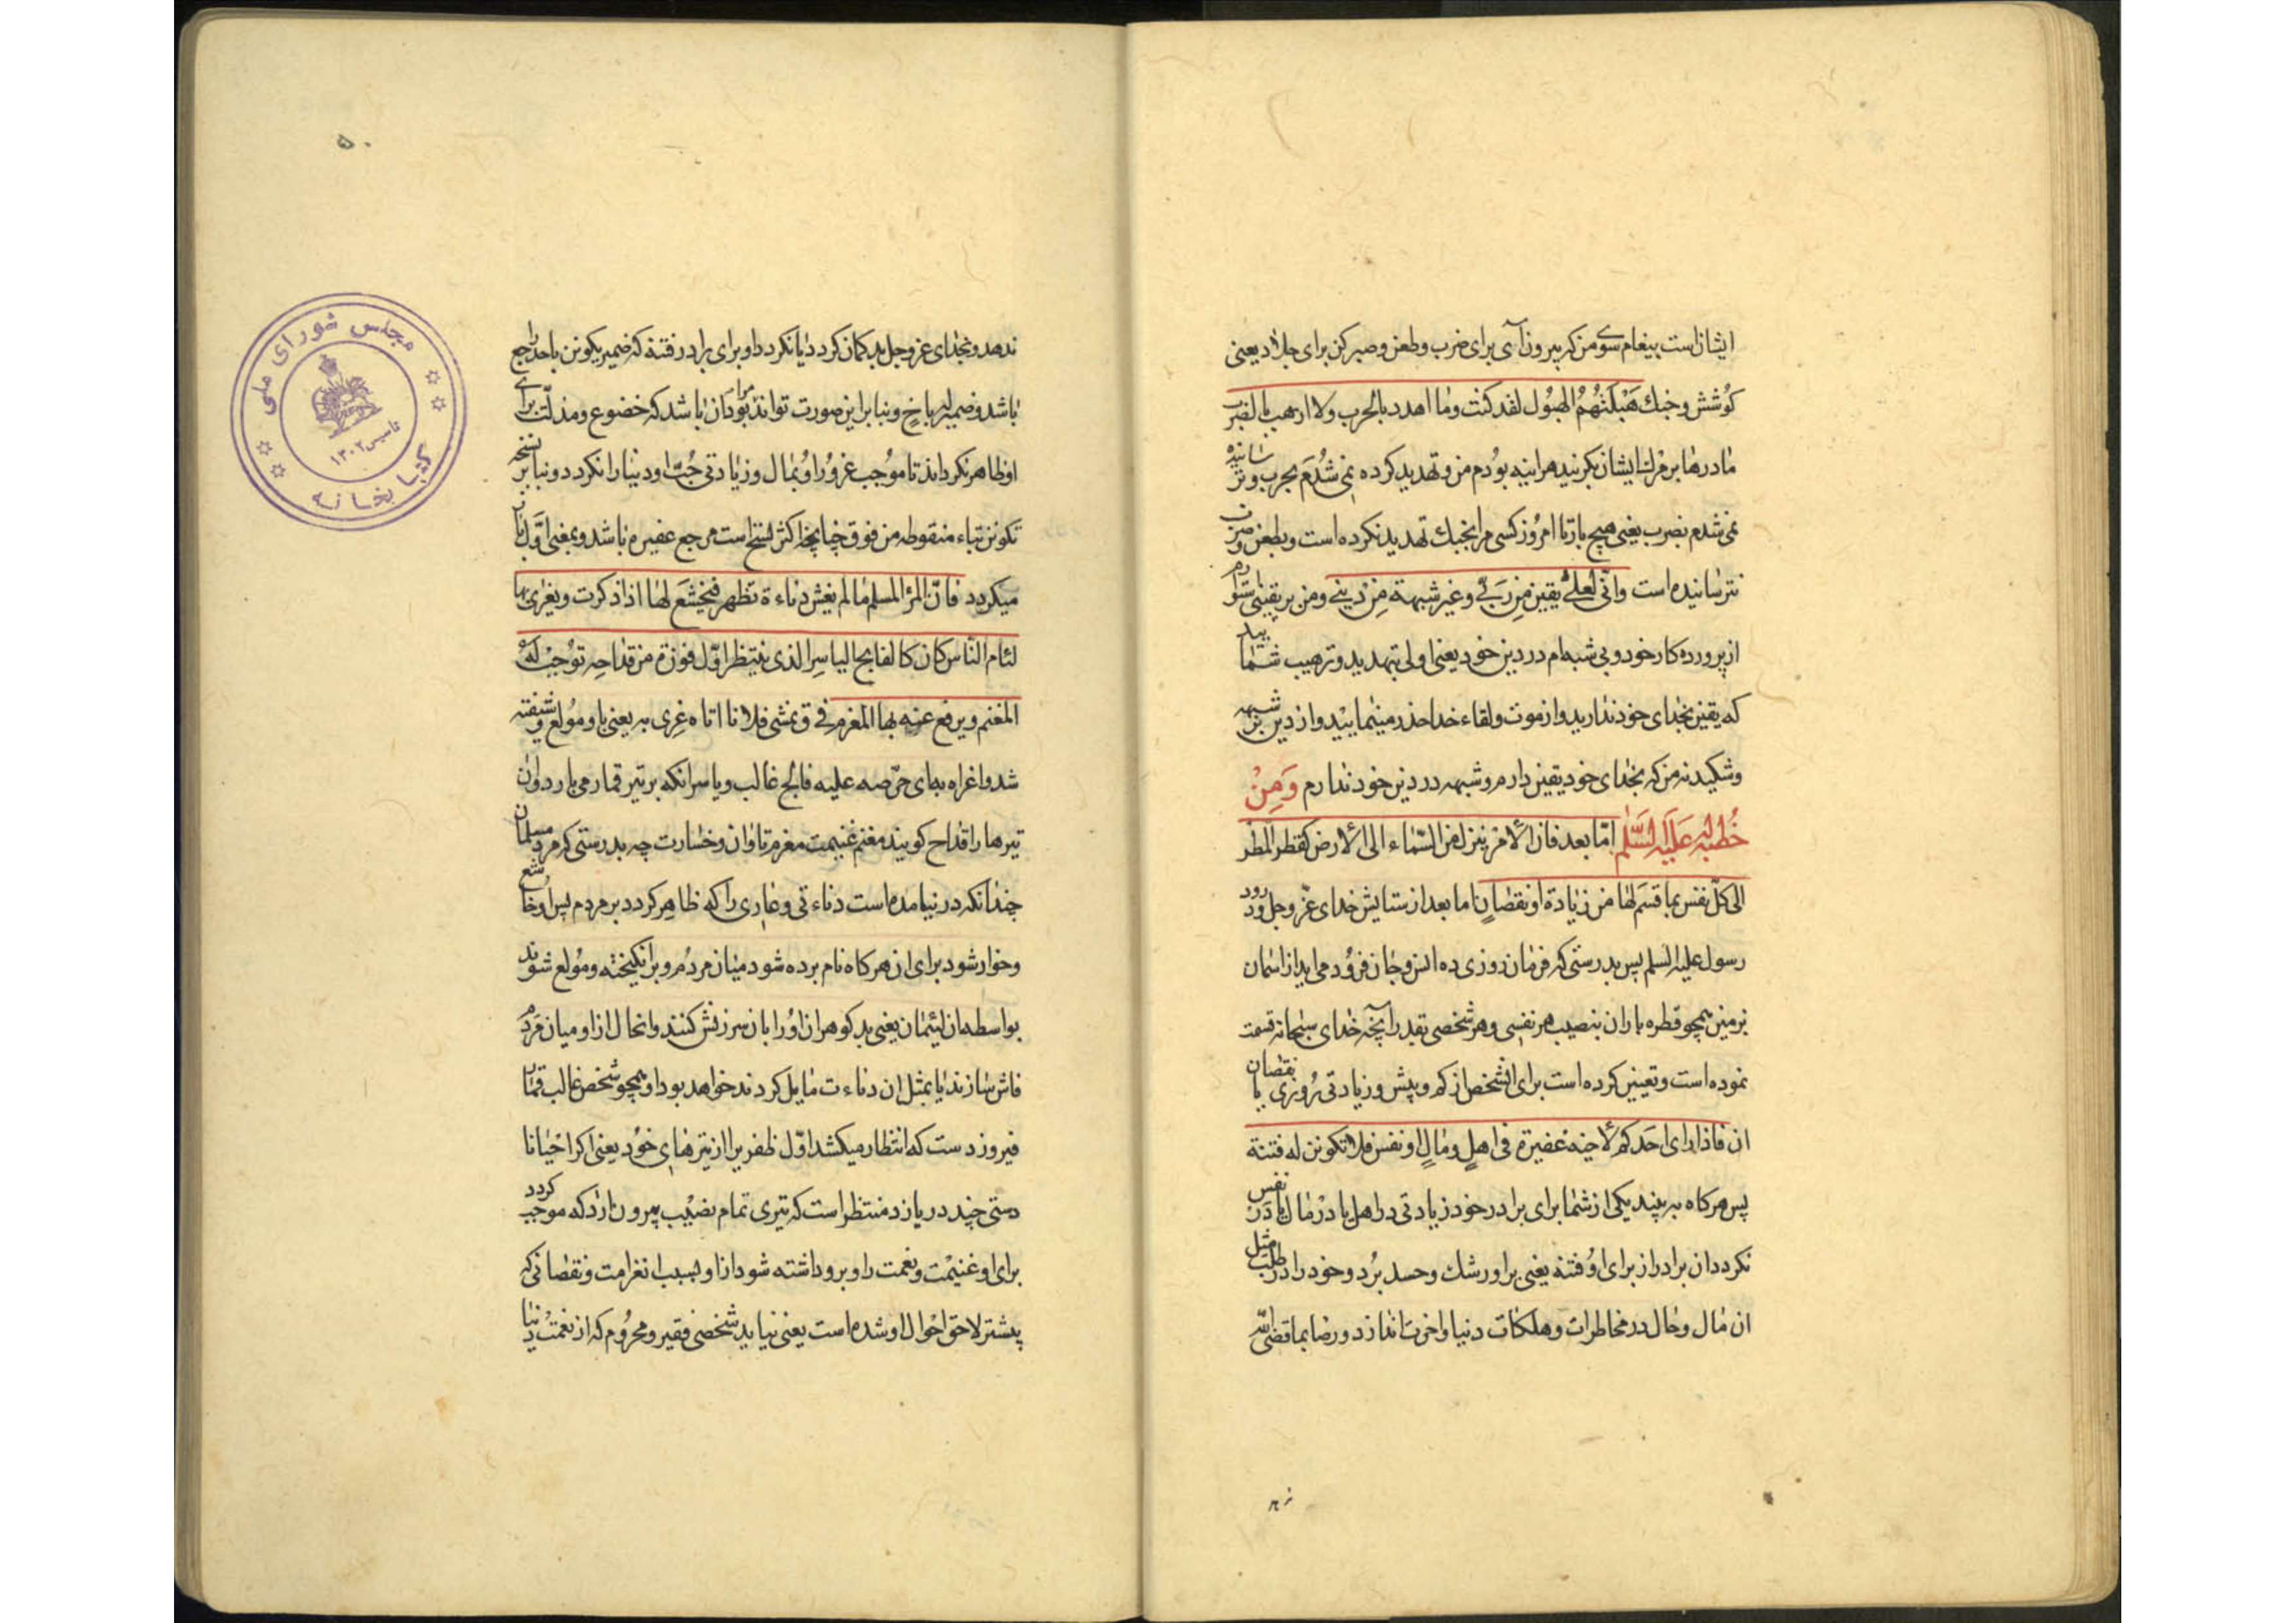 ایشانست پیغام سوی من که بیرون آی برای ضرب و طعن و صبر کن برای جلاد یعنی
کوشش و جنك هَبَلَتْهُمُ الهبُول لقد کنت وما اهدد بالحرب ولا ارهب بالضرب
مادرها بر مرك ایشان بکریند هراینه بودم من و تهدید کرده نمی شدم بحرب و ترسانیده
نمی شدم بضرب یعنی هیچ بار تا امروز کسی مرا بجنك تهدید نکرده است و بطعن و ضرب
نترسانیده است وانّی لعلیٰ یقین من ربّی وغیر شبهة من دینی ومن بر یقینی استوارم
از پرورده کار خود و بی شبه ام در دین خود یعنی اولی بتهدید و ترهیب شمائید
که یقین بخدای خود ندارید و از موت و لقاء خدا حذر مینمایید و از دین بر شبهه
و شکید نه من که بخدای خود یقین دارم و شبهه در دین خود ندارم وَمِنْ
خُطبَةٍ لَه عَلَیْه السَّلٰم امّا بعد فان الامر ینزل من السّماء الی الارض کقطر المطر
الی کلّ نفس بما قسم لها من زیادة او نقصانٍ اما بعد از ستایش خدای عزّ و جل و درود
رسول علیه السلم پس بدرستی که فرمان روزی ده انس و جان فرود می اید از اسمان
بر زمین همچو قطره باران بنصیب هر نفسی و هر شخصی بقدر آنچه خدای سبحانه قسمت
نموده است و تعیین کرده است برای انشخص از کم و بیش و زیادتی روزی یا نقصان
ان فاذا رای احدکم لاخیه غفیرة فی اهلٍ ومالٍ او نفس فلا تکونن له فتنة
پس هرکاه به بیند یکی از شما برای برادر خود زیادتی در اهل یا در مال یا در نفس
نکردد ان برادر از برای او فتنه یعنی بر او رشك و حسد برد و خود را در طلب مثل
ان مال و حال در مخاطرات و هلکات دنیا و اخرت اندازد و رضا بما قضی اللّه
ند
۵۰
ندهد و بخدای عز و جل بد کمان کردد یا نکردد او برای برادر فتنه که ضمیر یکونن باحد راجع
باشد و ضمیر له باخ و بنا براین صورت تواند بود مراد ان باشد که خضوع و مذلّت برای
او ظاهر نکرداند تا موجب غرور او بمال و زیادتی حُبّ او دنیا را نکردد و بنا بر نسخه
تکونن بتاء منقوطه من فوق چنانچه اکثر نسخ است مرجع غفیره باشد و بمعنی اوّل
میکردد فانّ المرء المسلم ما لم یغش دناءة تظهر فیخشع لها اذا ذکرت ویغری بها
لئام النّاس کان کالفالج الیاسر الذی ینتظر اوّل فوزة من قداحه توجب له
المغنم ویرفع عنه بها المغرم فی ق یغشی فلانا اتاه غری به یعنی باو مولع و شیفته
شد و اغراه به ای حرّصه علیه فالج غالب و یاسر انکه بر تیر قمار می بازد و ان
تیرها را قداح کویند مغنم غنیمت مغرم تاوان و خسارت چه بدرستی که مرد مسلمان
چندانکه در نیامده است دناءتی و عاری را که ظاهر کردد بر مردم پس او خاشع
و خوار شود برای ان هرکاه نام برده شود میان مردم و برانکیخته و مولع شوند
بواسطه ان لئیمان یعنی بدکوهران او را بان سرزنش کنند و انحال از او میان مردم
فاش سازند یا بمثل ان دناءت مایل کردند خواهد بود او همچو شخص غالب قمار
فیروز دست که انتظار میکشد اوّل ظفر را از تیرهای خود یعنی اکر احیانا
دستی چند در بازد منتظر است که تیری تمام نصیب بیرون ارد که موجب کردد
برای او غنیمت و نعمت را و برداشته شود از او بسبب ان غرامت و نقصانی که
پیشتر لاحق احوال او شده است یعنی نیاید شخصی فقیر و محروم که از نعمت دنیا
مجلس شورای ملی
کتابخانه
تاسیس ۱۳۰۲